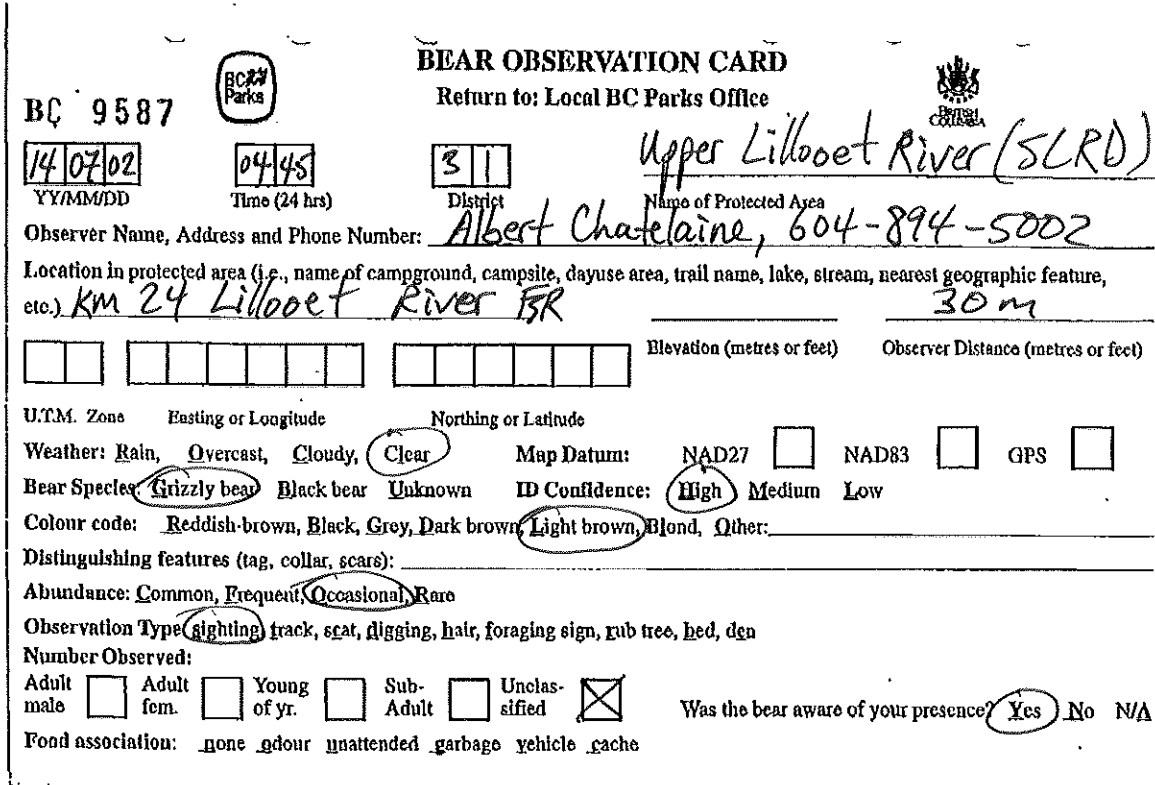 BEAR OBSERVATION CARD
Return to: Local BC Parks Office
BC Parks
BC 9587
British Columbia
14 07 02
04 45
3 1
Upper Lillooet River (SLRD)
YY/MM/DD Time (24 hrs) District Name of Protected Area
Observer Name, Address and Phone Number: Albert Chatelaine, 604-894-5002
Location in protected area (i.e., name of campground, campsite, dayuse area, trail name, lake, stream, nearest geographic feature,
etc.) Km 24 Lillooet River FSR 30 m
Elevation (metres or feet) Observer Distance (metres or feet)
U.T.M. Zone Easting or Longitude Northing or Latitude
Weather: Rain, Overcast, Cloudy, Clear Map Datum: NAD27 NAD83 GPS
Bear Species: Grizzly bear Black bear Unknown ID Confidence: High Medium Low
Colour code: Reddish-brown, Black, Grey, Dark brown, Light brown, Blond, Other:
Distinguishing features (tag, collar, scars):
Abundance: Common, Frequent, Occasional, Rare
Observation Type: sighting, track, scat, digging, hair, foraging sign, rub tree, bed, den
Number Observed:
Adult male Adult fem. Young of yr. Sub-Adult Unclas-sified Was the bear aware of your presence? Yes No N/A
Food association: none odour unattended garbage vehicle cache